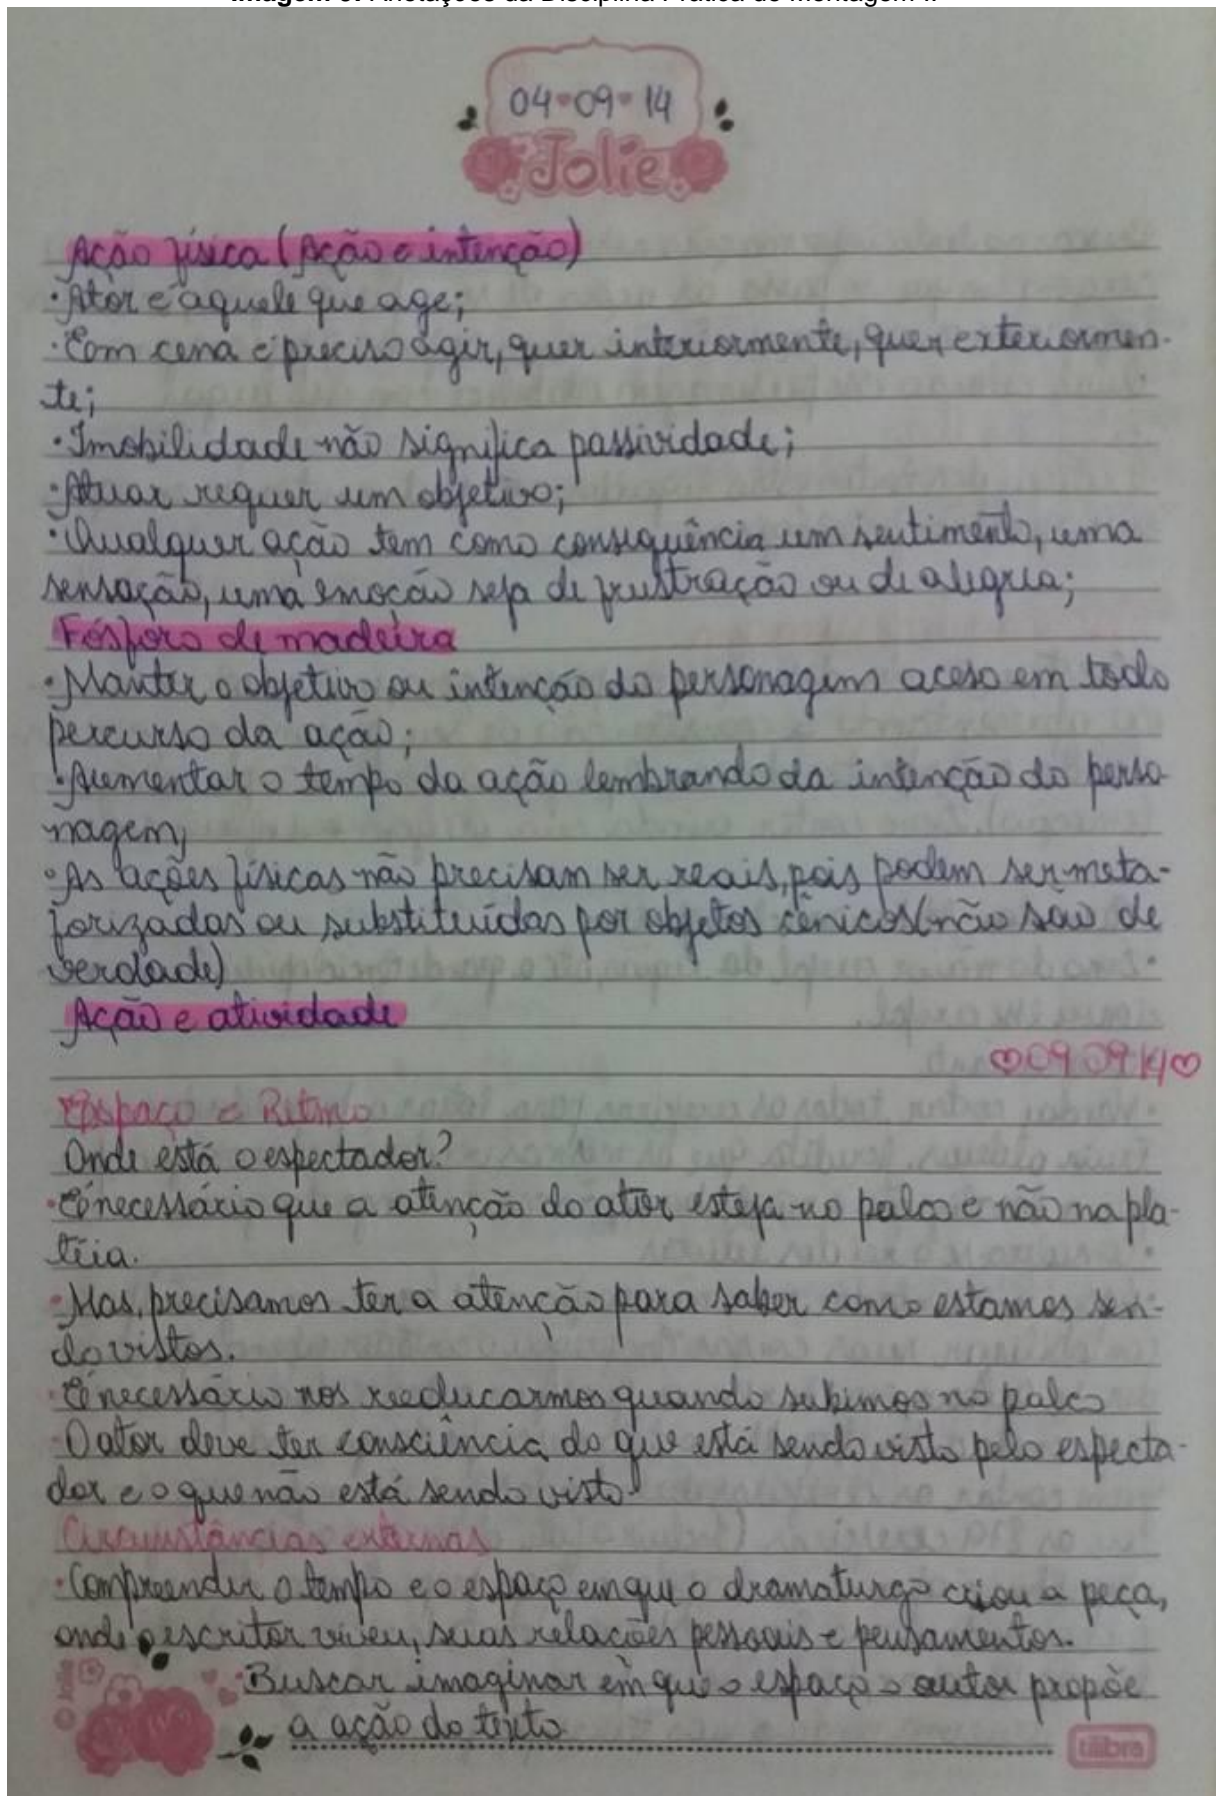 04 09 14
Jolie
Ação física (Ação e intenção)
• Ator é aquele que age;
• Em cena é preciso agir, quer interiormente, quer exteriormen-
te;
• Imobilidade não significa passividade;
• Atuar requer um objetivo;
• Qualquer ação tem como consequência um sentimento, uma
sensação, uma emoção seja de frustração ou de alegria;
Fósforo de madeira
• Manter o objetivo ou intenção do personagem aceso em todo
percurso da ação;
• Aumentar o tempo da ação lembrando da intenção do perso-
nagem;
• As ações físicas não precisam ser reais, pois podem ser meta-
forizadas ou substituídas por objetos cênicos (não são de
verdade)
Ação e atividade
♡09 09 14♡
Espaço e Ritmo
Onde está o espectador?
• É necessário que a atenção do ator esteja no palco e não na pla-
téia.
• Mas, precisamos ter a atenção para saber como estamos sen-
do vistos.
• É necessário nos reeducarmos quando subimos no palco
• O ator deve ter consciência do que está sendo visto pelo especta-
dor e o que não está sendo visto
Circunstâncias externas
• Compreender o tempo e o espaço em que o dramaturgo criou a peça,
onde o escritor viveu, suas relações pessoais e pensamentos.
• Buscar imaginar em que o espaço o autor propõe
a ação do texto
© Jolie
tilibra